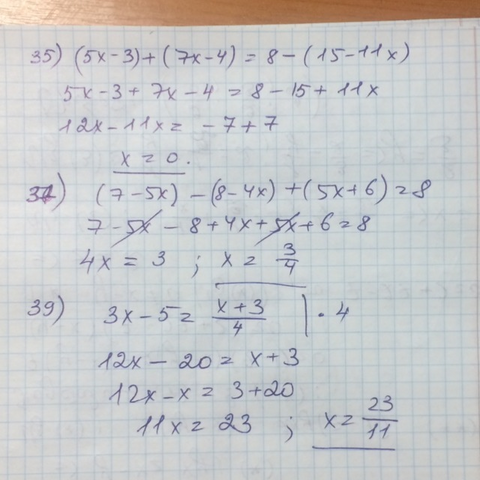 35) (5x-3)+(7x-4) = 8-(15-11x)
5x-3+7x-4 = 8-15+11x
12x-11x = -7+7
x = 0.
37) (7-5x) -(8-4x) +(5x+6) = 8
7-5x - 8+4x+5x+6 = 8
4x = 3 ; x = 3/4
39) 3x-5 = (x+3)/4 | · 4
12x - 20 = x+3
12x-x = 3+20
11x = 23 ; x = 23/11